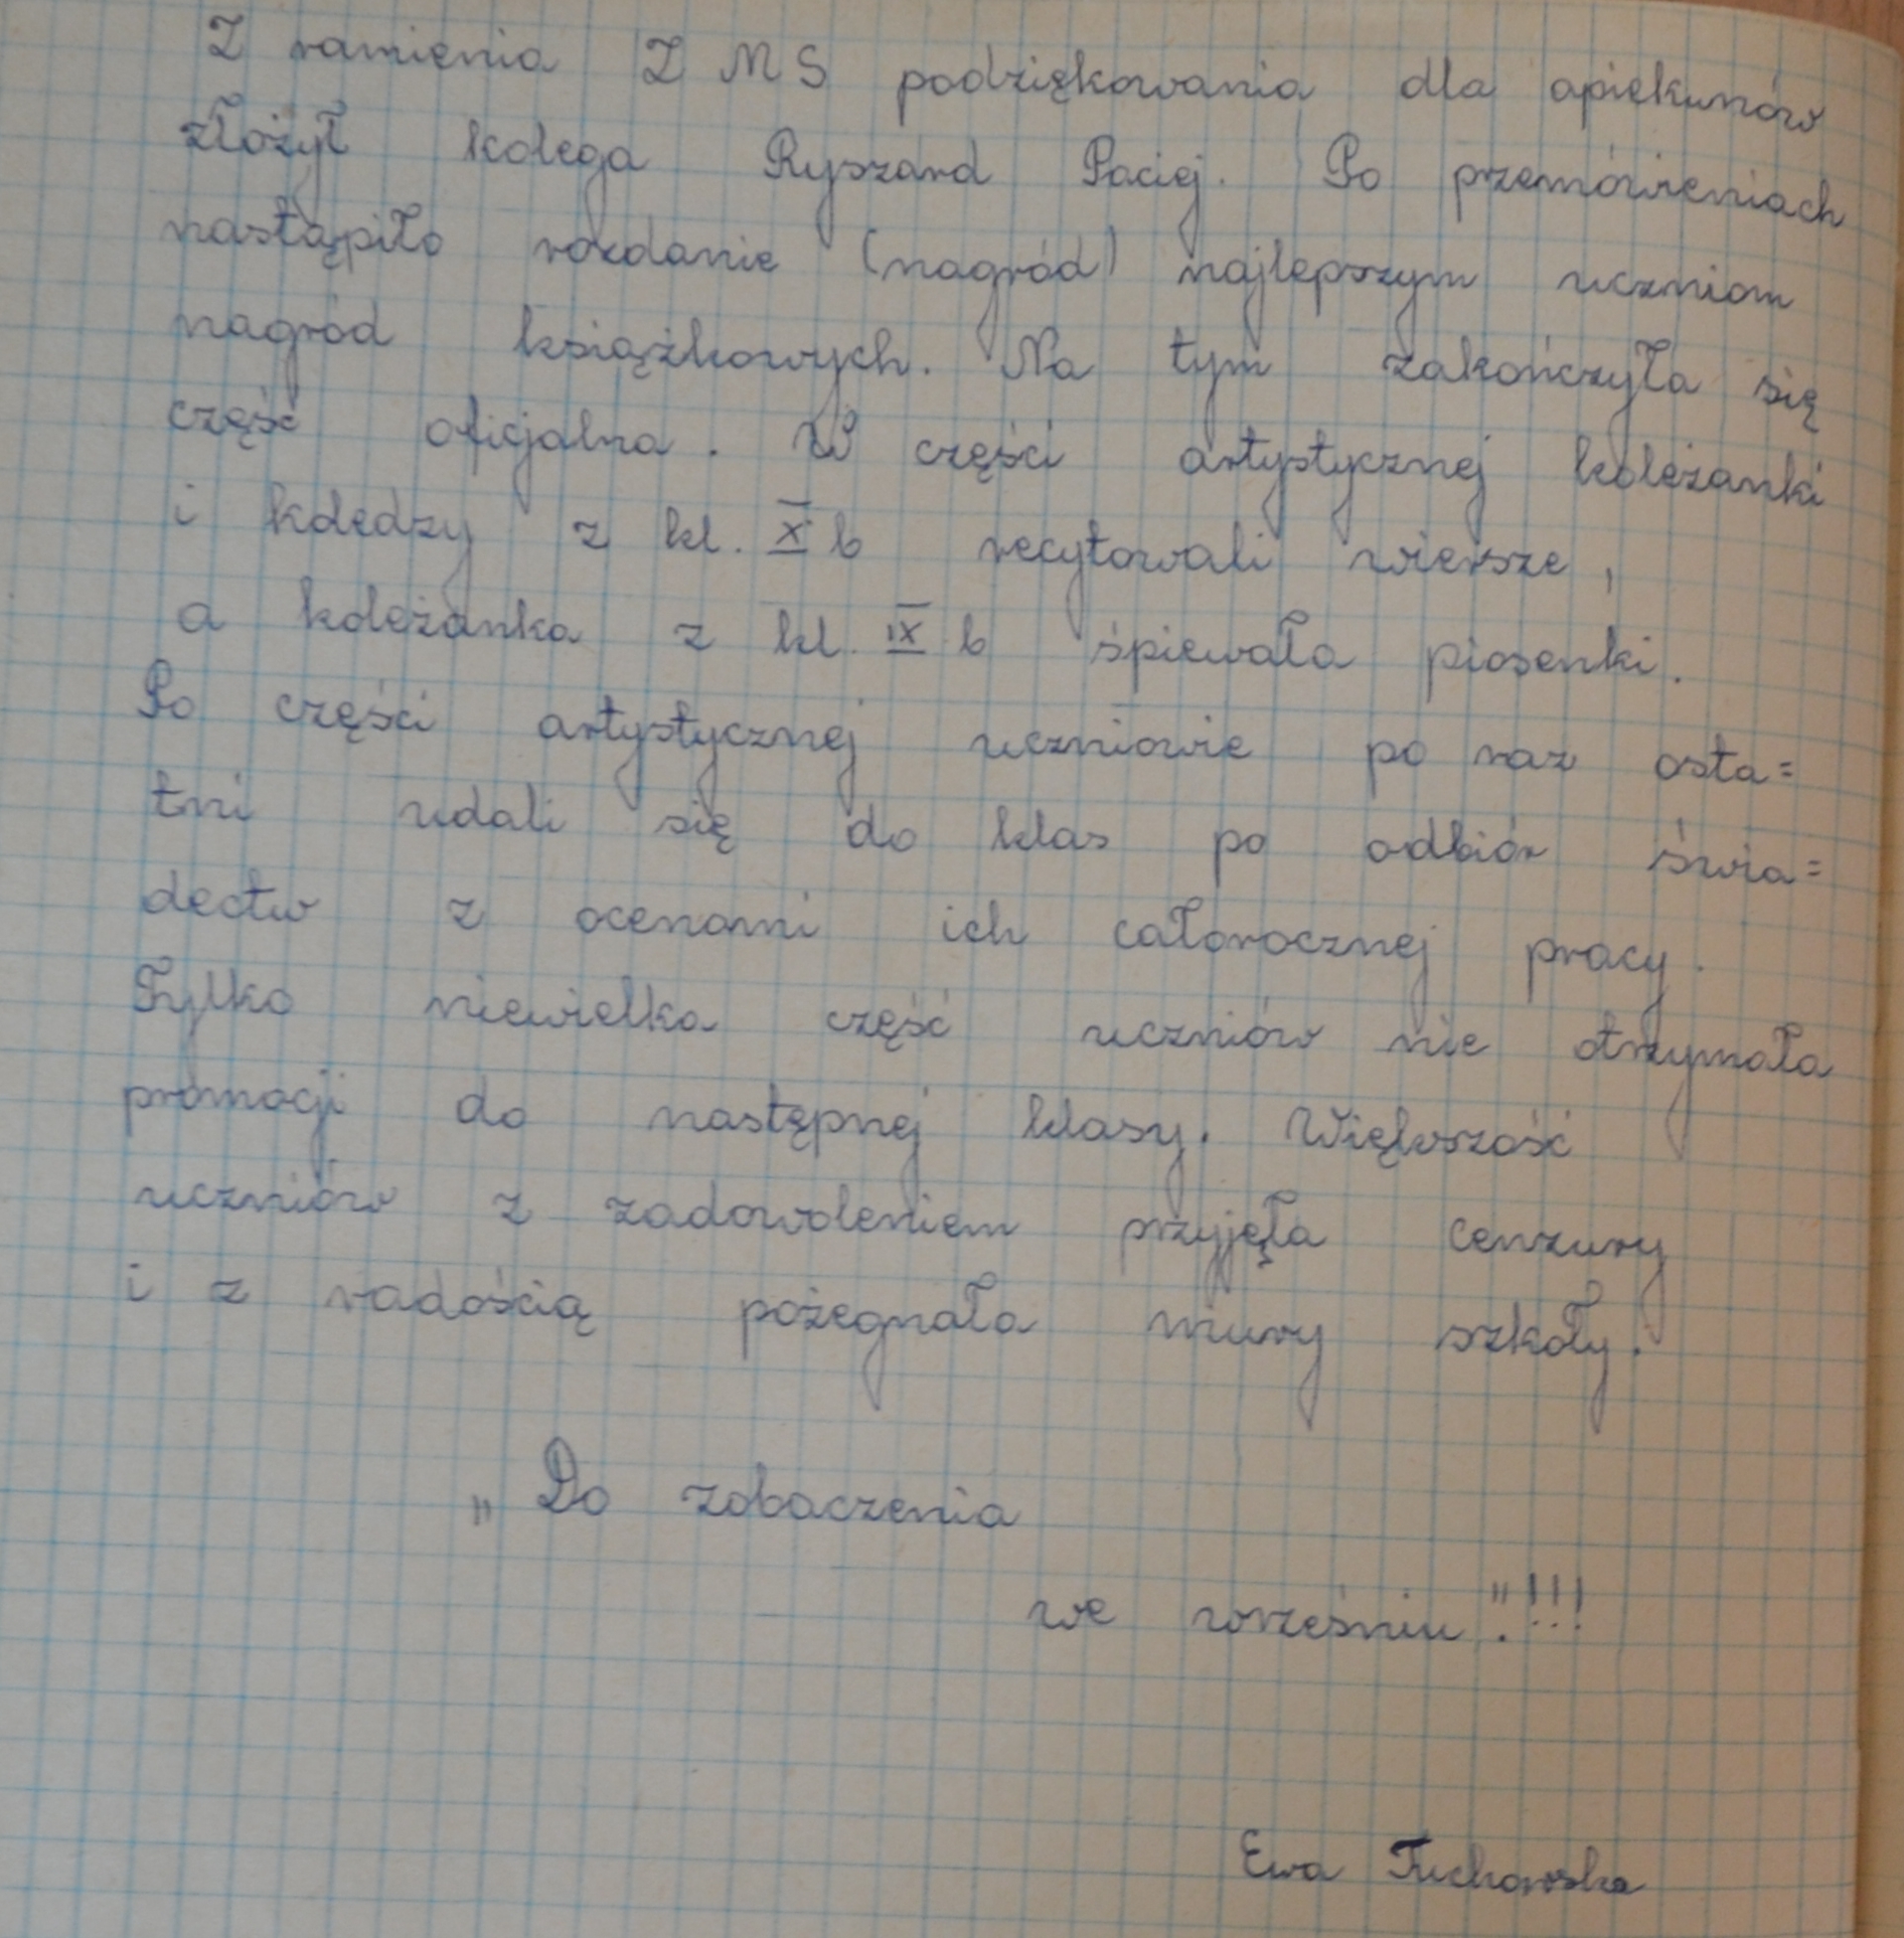 Z ramienia ZMS podziękowania dla opiekunów
złożył kolega Ryszard Paciej. Po przemówieniach
nastąpiło rozdanie (nagród) najlepszym uczniom
nagród książkowych. Na tym zakończyła się
część oficjalna. W części artystycznej koleżanki
i koledzy z kl. X b recytowali wiersze,
a koleżanka z kl. IX b śpiewała piosenki.
Po części artystycznej uczniowie po raz osta=
tni udali się do klas po odbiór świa=
dectw z ocenami ich całorocznej pracy.
Tylko niewielka część uczniów nie otrzymała
promocji do następnej klasy. Większość
uczniów z zadowoleniem przyjęła cenzury
i z radością pożegnała mury szkoły.
„Do zobaczenia
we wrześniu."!!!
Ewa Tuchowska